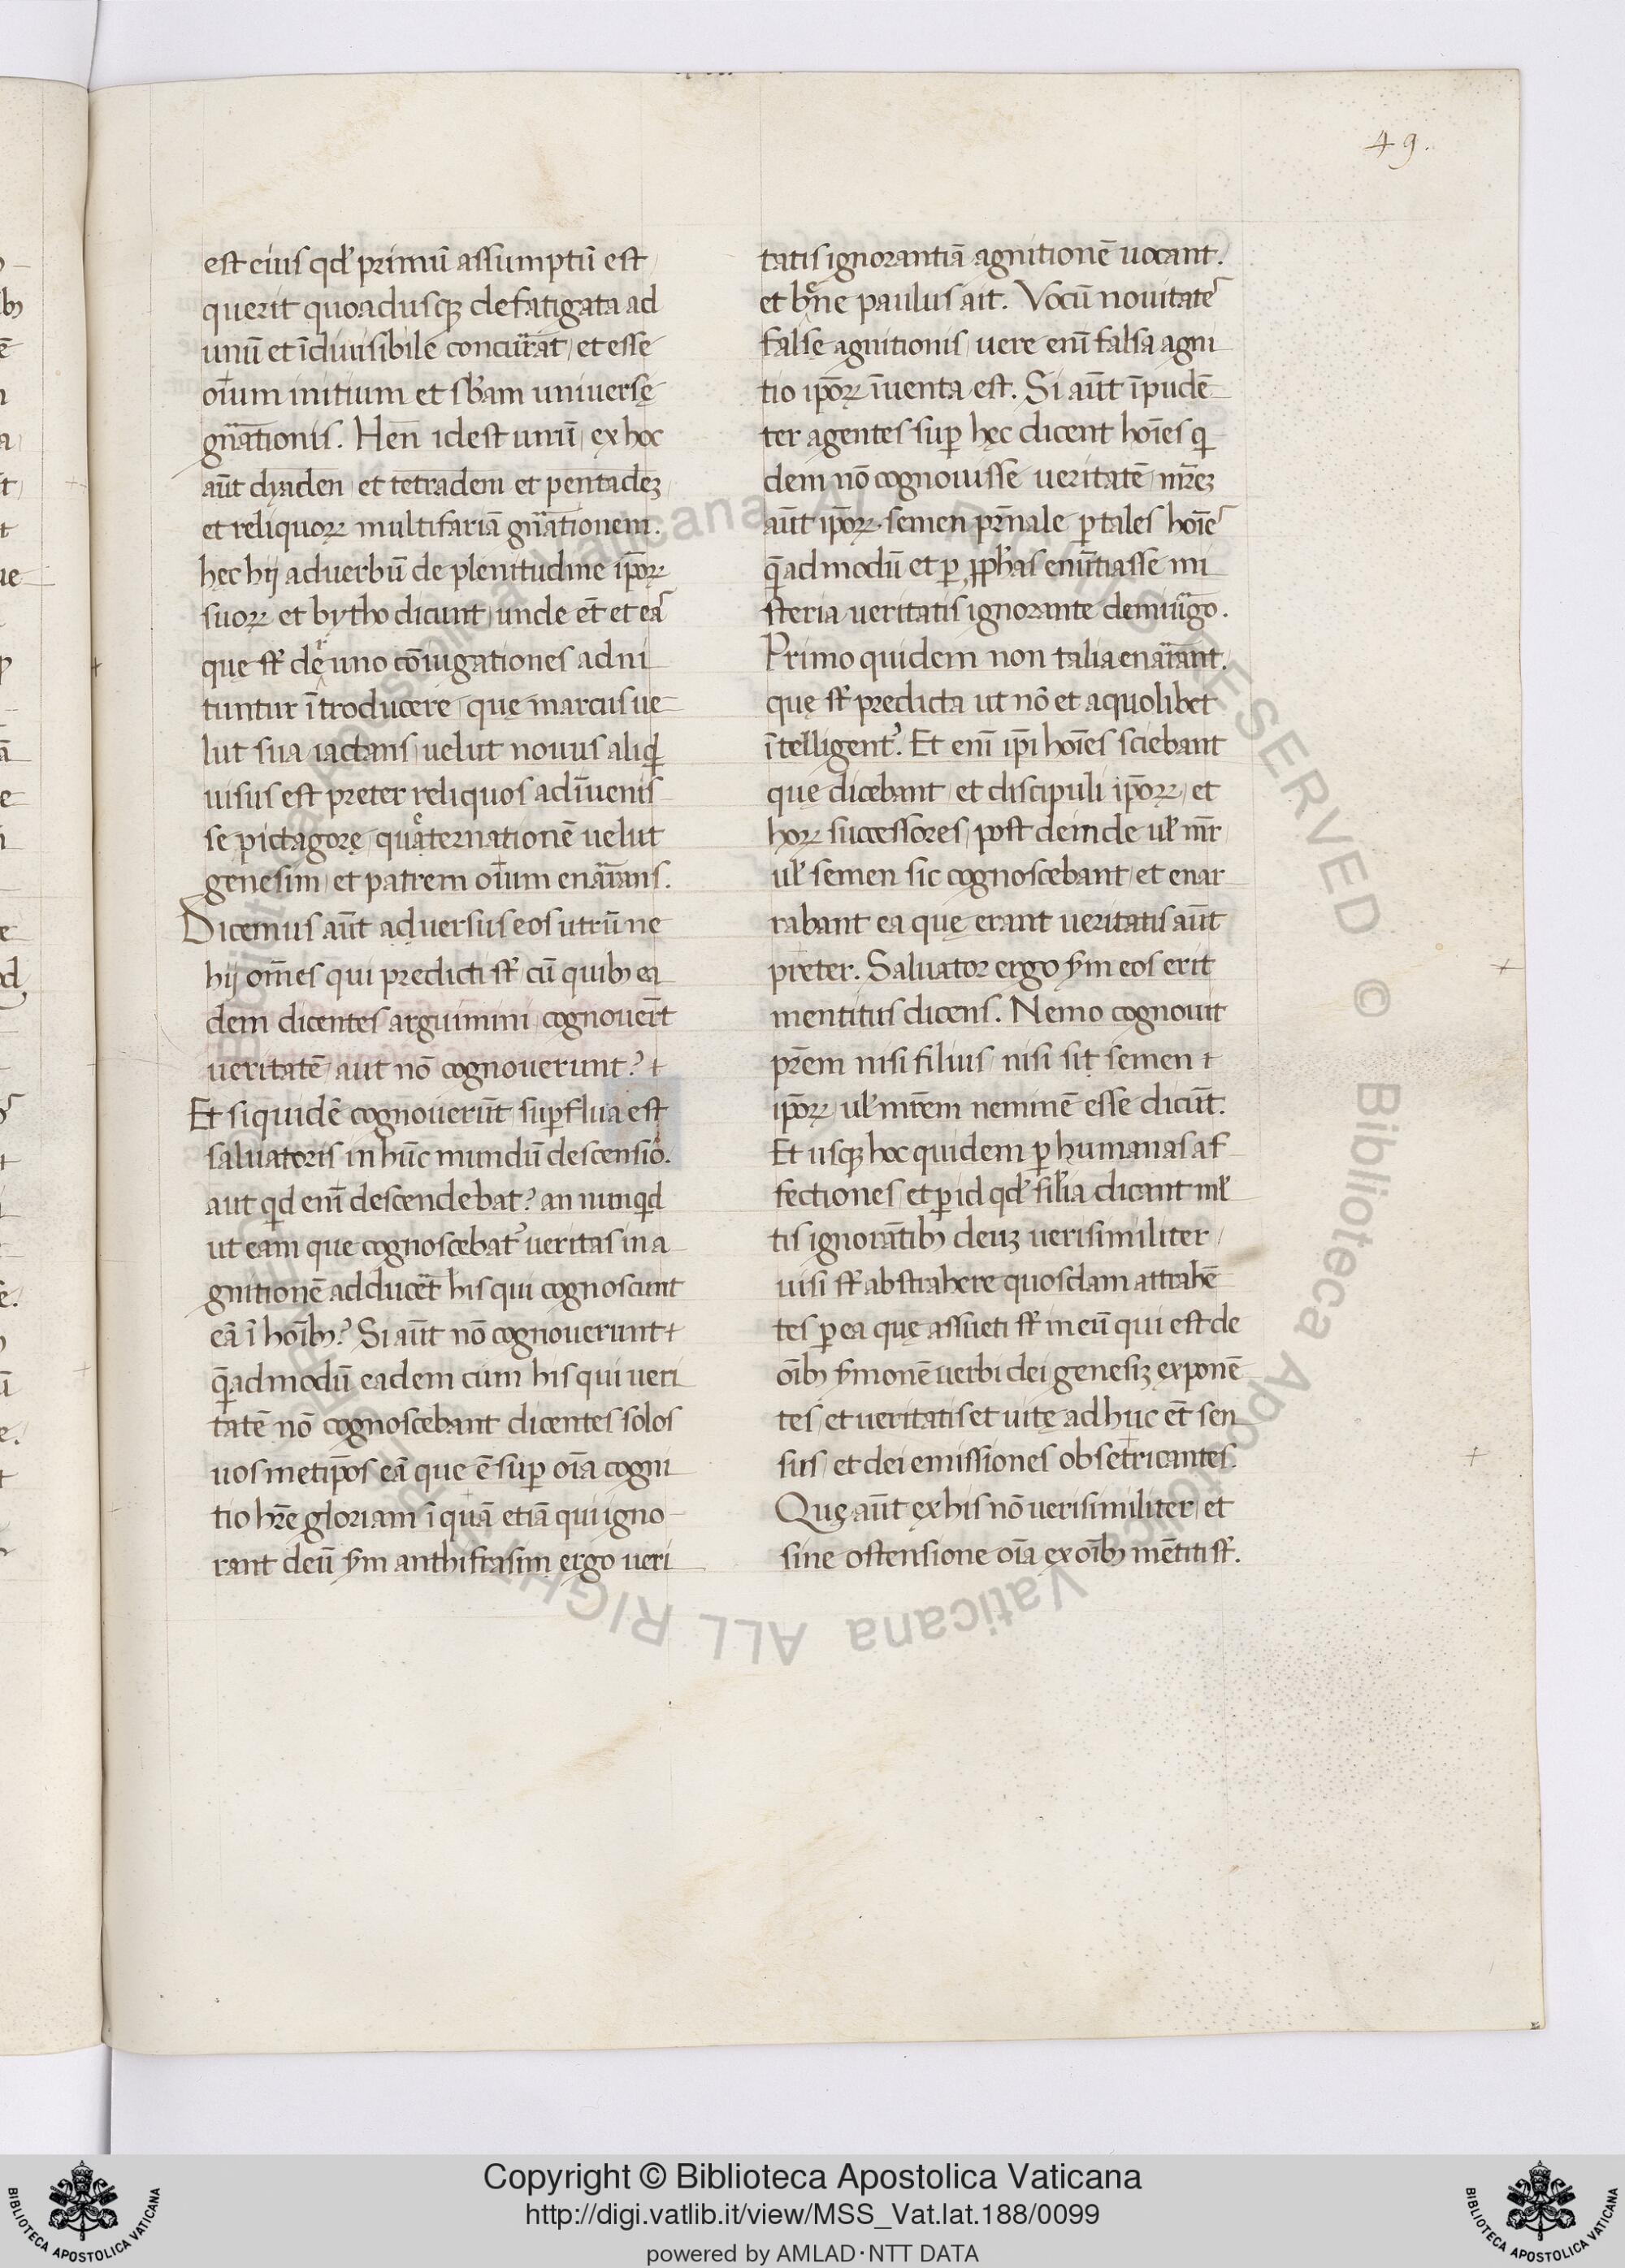 49.
est eius qd' primū assumptū est
querit quoadusqꝫ defatigata ad
unū et īdiuisibile concurrat et esse
oīum initium et sb'am universę
gn̄ationis. Hen idest unū ex hoc
aūt dyaden et tetradem et pentadeꝫ
et reliquoꝝ multifariā gn̄ationem.
hęc hij aduerbū de plenitudine ip̄oꝝ
suoꝝ et bytho dicunt unde et̄ et ea
que st̄ de uno cōiugationes adni
tuntur ītroducere que marcus ue
lut sua iactans uelut nouus aliqd
uisus est preter reliquos adīuenis
se pictagorę quaternationē uelut
genesim et patrem oīum enarrans.
Dicemus aūt aduersus eos utrū ne
hij om̄es qui predicti st̄ cū quibꝫ ea
dem dicentes arguimini cognouer̄t
ueritatē aut nō cognouerunt? +
Et si quidē cognouerūt suꝑflua est
saluatoris in hūc mundū descensio.
aut qd enī descendebat? an nunqd
ut eam que cognoscebat᷑ ueritas in a
gnitionē adduceret his qui cognoscunt
eā ī hoībꝫ? Si aūt nō cognouerunt +
q̄admodū eadem cum his qui ueri
tatē nō cognoscebant dicentes solos
uosmetip̄os eā que ē suꝑ oīa cogni
tio hr̄e gloriam ī quā etiā qui igno
rant deū sm anthifrasim ergo ueri
tatis ignorantiā agnitionē uocant.
et bene paulus ait. Vocū nouitate
false agnitionis uere enī falsa agni
tio ip̄oꝝ īuenta est. Si aūt īpudē
ter agentes suꝑ hęc dicent hoīes q
dem nō cognouisse ueritatē mr̄eꝫ
aūt ip̄oꝝ semen pr̄nale ꝑ tales hoīe
q̄admodū et ꝑ ꝓph'as enūtiasse mi
steria ueritatis ignorante demiurgo.
Primo quidem non talia enarrant.
que st̄ predicta ut nō et a quolibet
ītelligent᷑. Et enī ip̄i hoīes sciebant
que dicebant et discipuli ip̄oꝝ et
hoꝝ successores post deinde ul' mr̄
ul' semen sic cognoscebant et enar
rabant ea que erant ueritatis aūt
preter. Saluator ergo sm eos erit
mentitus dicens. Nemo cognouit
pr̄em nisi filius nisi sit semen +
ip̄oꝝ ul' mr̄em neminē esse dicūt.
Et usqꝫ hoc quidem ꝑ humanas af
fectiones et ꝑ id qd' sil'ia dicant ml'
tis ignorātibꝫ deuꝫ uerisimiliter
uisi st̄ abstrahere quosdam attrahē
tes ꝑ ea que assueti st̄ in eū qui est de
oībꝫ sermonē uerbi dei genesiꝫ exponē
tes et ueritatis et uitę adhuc et̄ sen
sus et dei emissiones obsetricantes.
Quę aūt ex his nō uerisimiliter et
sine ostensione oīa ex oībꝫ mētiti st̄.
Copyright © Biblioteca Apostolica Vaticana
http://digi.vatlib.it/view/MSS_Vat.lat.188/0099
powered by AMLAD·NTT DATA